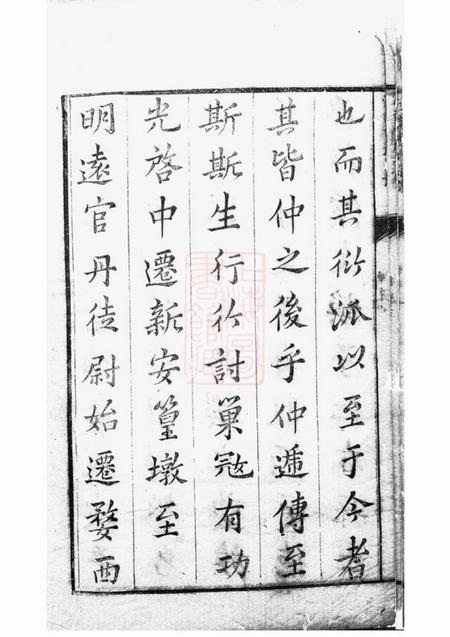 也而其衍派以至于今者
其皆仲之後乎仲遞傳至
斯斯生行行討巢寇有功
光啓中遷新安篁墩至
明遠官丹徒尉始遷婺西